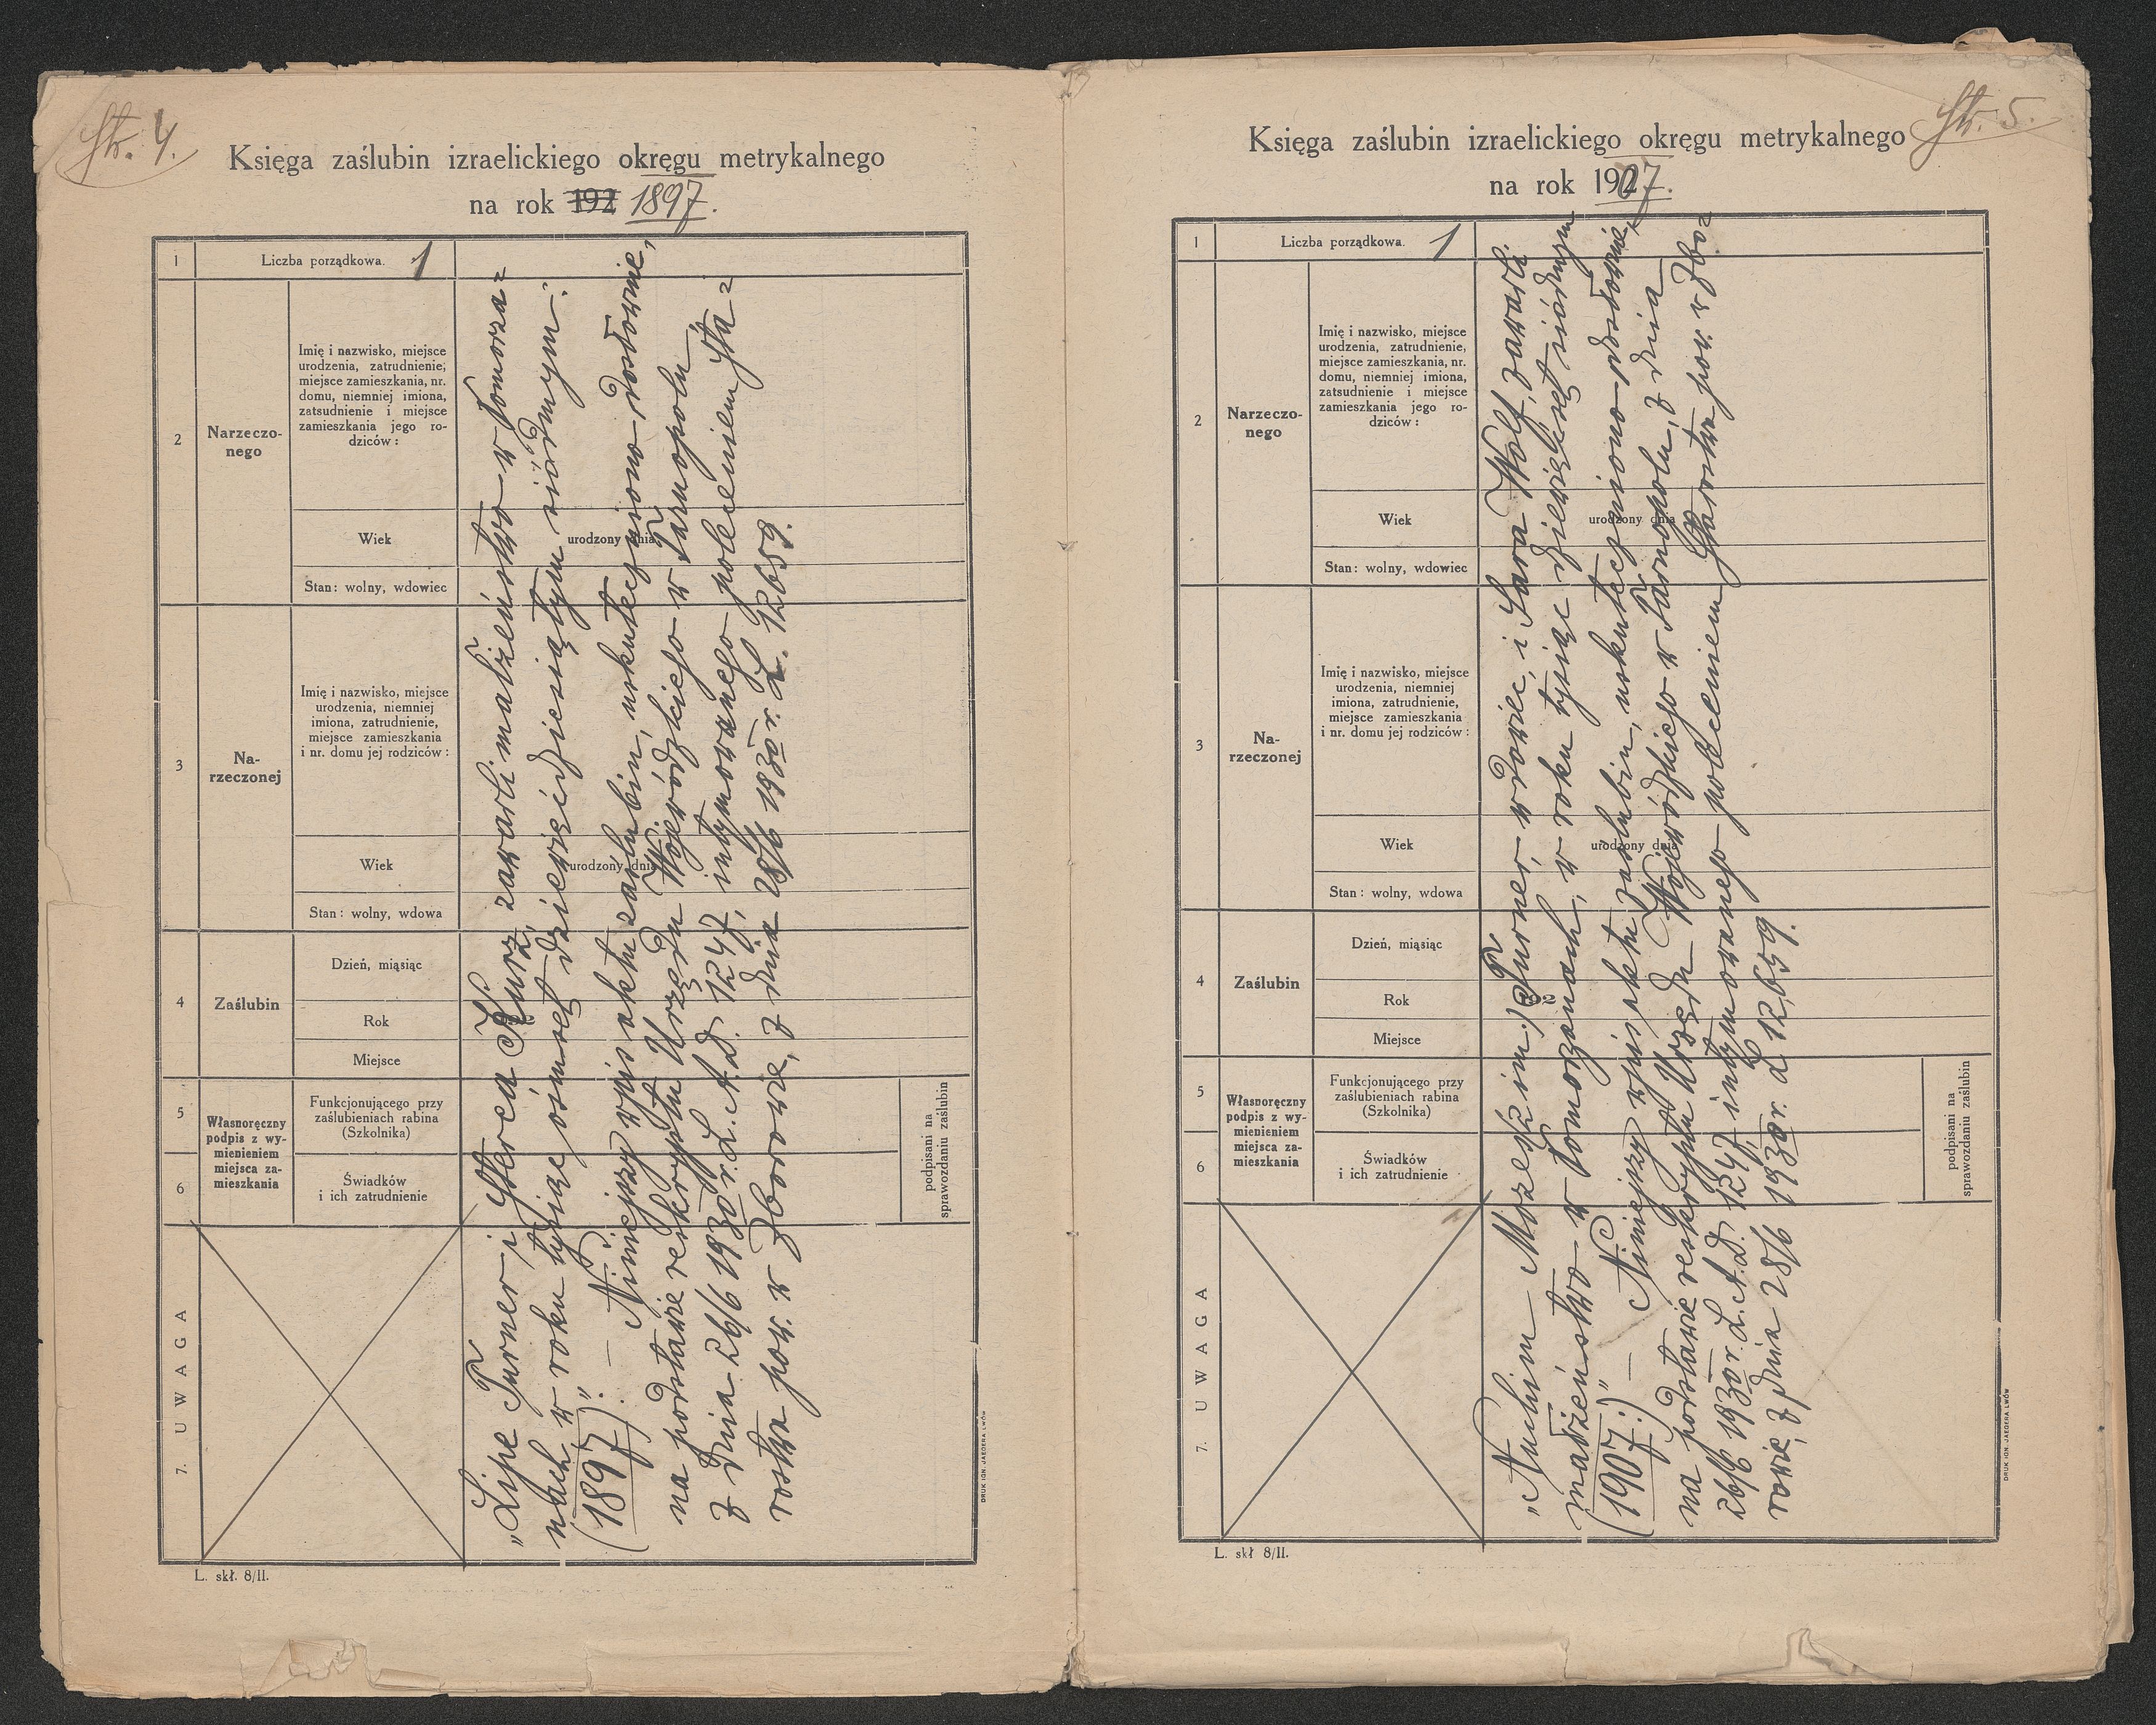 Str. 4.
Księga zaślubin izraelickiego okręgu metrykalnego
na rok 192 1897.
1
Liczba porządkowa. 1
2
Narzeczo-
nego
Imię i nazwisko, miejsce
urodzenia, zatrudnienie,
miejsce zamieszkania, nr.
domu, niemniej imiona,
zatsudnienie i miejsce
zamieszkania jego ro-
dziców :
Wiek
urodzony dnia
Stan: wolny, wdowiec
3
Na-
rzeczonej
Imię i nazwisko, miejsce
urodzenia, niemniej
imiona, zatrudnienie,
miejsce zamieszkania
i nr. domu jej rodziców :
Wiek
urodzony dnia
Stan: wolny, wdowa
4
Zaślubin
Dzień, miąsiąc
Rok
192
Miejsce
5
6
Własnoręczny
podpis z wy-
mienieniem
miejsca za-
mieszkania
Funkcjonującego przy
zaślubieniach rabina
(Szkolnika)
Świadków
i ich zatrudnienie
podpisani na
sprawozdaniu zaślubin
7. UWAGA
„Lipe Turner i Sterca Kurz, zawarli małżeństwo w Pomorza=
nach, w roku tysiąc ośmset dziewięćdziesiątym siódmym.
(1897)." — Niniejszy wpis aktu zaślubin, uskuteczniono dosłownie,
na podstawie reskryptu Urzędu Wojewódzkiego w Tarnopolu
z dnia 26/6 1930 r. L. A.D. 1247, intymowanego poleceniem Sta=
rostwa pow. w Zborowie, z dnia 28/6 1930 r. L. 12659.
L. skł. 8/II.
DRUK IGN. JAEGERA LWÓW
Str. 5.
Księga zaślubin izraelickiego okręgu metrykalnego
na rok 1907.
1
Liczba porządkowa. 1
2
Narzeczo-
nego
Imię i nazwisko, miejsce
urodzenia, zatrudnienie,
miejsce zamieszkania, nr.
domu, niemniej imiona,
zatsudnienie i miejsce
zamieszkania jego ro-
dziców :
Wiek
urodzony dnia
Stan: wolny, wdowiec
3
Na-
rzeczonej
Imię i nazwisko, miejsce
urodzenia, niemniej
imiona, zatrudnienie,
miejsce zamieszkania
i nr. domu jej rodziców :
Wiek
urodzony dnia
Stan: wolny, wdowa
4
Zaślubin
Dzień, miąsiąc
Rok
192
Miejsce
5
6
Własnoręczny
podpis z wy-
mienieniem
miejsca za-
mieszkania
Funkcjonującego przy
zaślubieniach rabina
(Szkolnika)
Świadków
i ich zatrudnienie
podpisani na
sprawozdaniu zaślubin
7. UWAGA
„Nuchim Turner, wdowiec, i Sara Wolf, zawarli
małżeństwo w Pomorzanach, w roku tysiąc dziewięćset siódmym
(1907.)" — Niniejszy wpis aktu zaślubin, uskuteczniono dosłownie,
na podstawie reskryptu Urzędu Wojewódzkiego w Tarnopolu, z dnia
26/6 1930 r. L. A.D. 1247, intymowanego poleceniem Starostwa pow. w Zbo=
rowie, z dnia 28/6 1930 r. L 12,659.
L. skł 8/II.
DRUK IGN. JAEGERA LWÓW